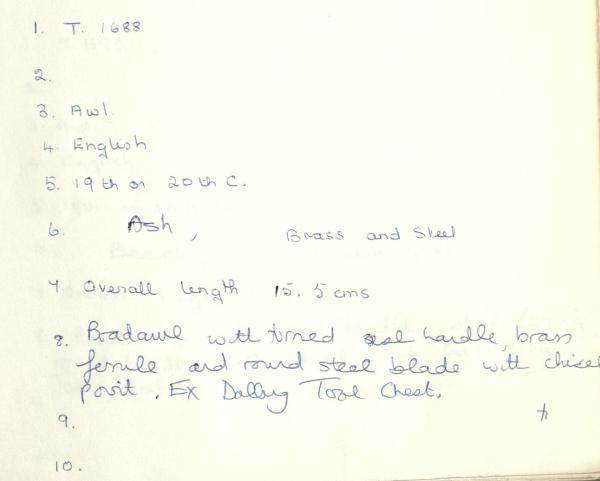 1. T. 1688
2.
3. Awl.
4. English
5. 19th or 20th C.
6. Ash, Brass and Steel
7. Overall length 15.5 cms
8. Bradawl with turned handle, brass
ferrule and round steel blade with chisel
point. Ex Tool Chest.
9.
10.